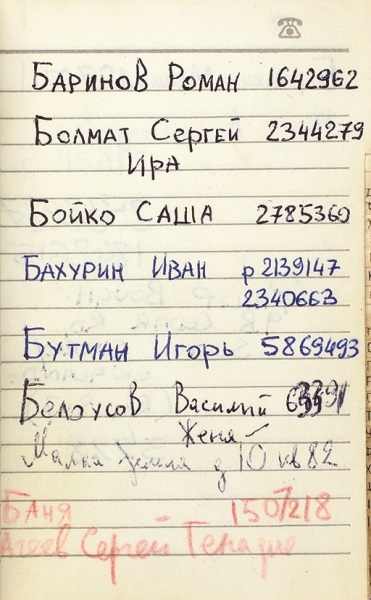 Баринов Роман 1642962
Болмат Сергей 2344279
Ира
Бойко Саша 2785360
Бахурин Иван р 2139147
2340663
Бутман Игорь 5869493
Белоусов Василий
Женя
д 10 кв 82
Баня 1507218
Агеев Сергей